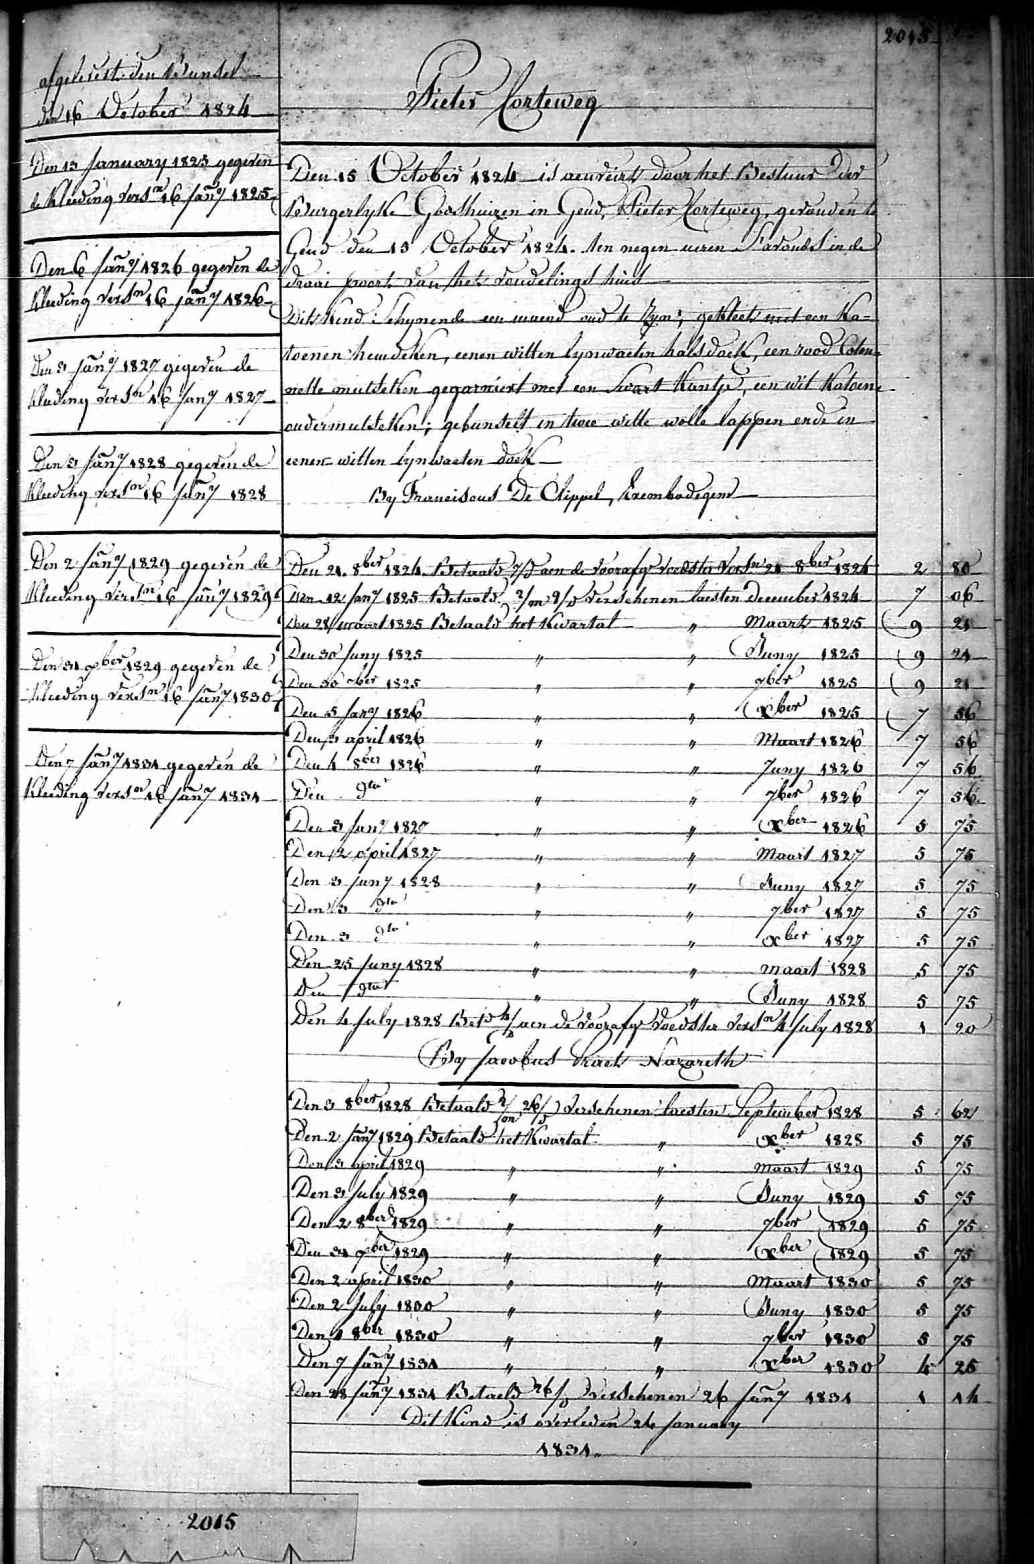 2015
Pieter Corteweg
afgeleverd den Bundel
den 16 October 1824
Den 13 January 1825 gegeven
de kleeding versn 16 Jany 1825
Den 6 Jany 1826 gegeven de
kleeding versn 16 Jany 1826
Den 3 Jany 1827 gegeven de
kleeding versn 16 Jany 1827
Den 3 Jany 1828 gegeven de
kleeding versn 16 Jany 1828
Den 2 Jany 1829 gegeven de
kleeding versn 16 Jany 1829
Den 31 xber 1829 gegeven de
kleeding versn 16 Jany 1830
Den 7 Jany 1831 gegeven de
kleeding versn 16 Jany 1831
Den 15 October 1824 is aenveird door het Bestuur der
Burgerlyke Godshuizen in Gend, Pieter Corteweg, gevonden te
Gend den 15 October 1824 ten negen uren s'avonds in de
draai poort van het vondelings huis
Dit kind Schynende een maend oud te zyn; gekleed met een Ka-
toenen hemdeken, eenen witten lynwaeten halsdoek, een rood
mutseken gegarniert met een swart kantje, een wit katoene
ondermutseken; gebunselt in twee witte wolle lappen ende in
eenen witten lynwaeten doek
By Franciscus De Clippel, Erembodegem
Den 21 8ber 1824 Betaald aen de voorafge voedster versn 21 8ber 1824 2 80
Den 12 Jany 1825 Betaald verschenen laesten december 1824 7 06
Den 28 maart 1825 Betaald het Kwartal " Maart 1825 9 21
Den 30 Juny 1825 " " Juny 1825 9 21
Den 30 7ber 1825 " " 7ber 1825 9 21
Den 5 Jany 1826 " " xber 1825 7 56
Den 3 april 1826 " " Maart 1826 7 56
Den 4 8ber 1826 " " Juny 1826 7 56
Den dto " " 7ber 1826 7 56
Den 3 Jany 1827 " " xber 1826 5 75
Den 2 april 1827 " " Maart 1827 5 75
Den 3 Jany 1828 " " Juny 1827 5 75
Den 3 dto " " 7ber 1827 5 75
Den 3 dto " " xber 1827 5 75
Den 25 Juny 1828 " " maart 1828 5 75
Den dto " " Juny 1828 5 75
Den 4 July 1828 Betd aen de voorafge voedster versn 4 July 1828 1 20
By Jacobus Nazareth
Den 3 8ber 1828 Betaald verschenen laesten September 1828 5 62
Den 2 Jany 1829 Betaald het Kwartal " xber 1828 5 75
Den 3 april 1829 " " maart 1829 5 75
Den 3 July 1829 " " Juny 1829 5 75
Den 2 8ber 1829 " " 7ber 1829 5 75
Den 31 xber 1829 " " xber 1829 5 75
Den 2 april 1830 " " Maart 1830 5 75
Den 2 July 1830 " " Juny 1830 5 75
Den 1 8ber 1830 " " 7ber 1830 5 75
Den 7 Jany 1831 " " xber 1830 4 25
Den 28 Jany 1831 Betaeld 26/ verschenen 26 Jany 1831 1 14
Dit Kind is overleden 26 January
1831
2015